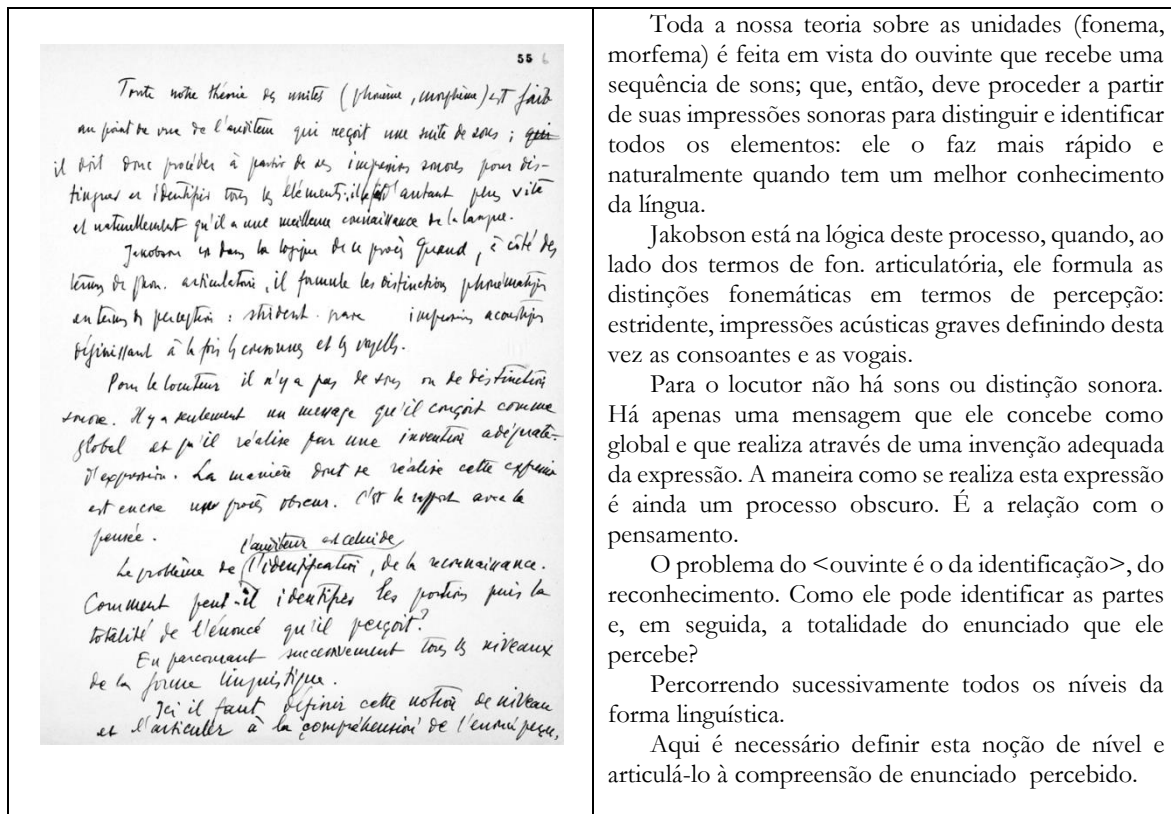 55 6
Toute notre théorie des unités (phonème, morphème) est faite
au point de vue de l'auditeur qui reçoit une suite de sons ; qui
il doit donc procéder à partir de ses impressions sonores pour dis-
tinguer et identifier tous les éléments: il le fait d'autant plus vite
et naturellement qu'il a une meilleure connaissance de la langue.
Jakobson est dans la logique de ce procès quand, à côté des
termes de phon. articulatoire, il formule les distinctions phonématiques
en termes de perception : strident grave impressions acoustiques
définissant à la fois les consonnes et les voyelles.
Pour le locuteur il n'y a pas de sons ou de distinction
sonore. Il y a seulement un message qu'il conçoit comme
global et qu'il réalise par une invention adéquate
d'expression. La manière dont se réalise cette expression
est encore un procès obscur. C'est le rapport avec la
pensée.
l'auditeur est celui de
Le problème de l'identification, de la reconnaissance.
Comment peut-il identifier les portions puis la
totalité de l'énoncé qu'il perçoit?
En parcourant successivement tous les niveaux
de la forme linguistique.
Ici il faut définir cette notion de niveau
et l'articuler à la compréhension de l'énoncé perçu,
Toda a nossa teoria sobre as unidades (fonema,
morfema) é feita em vista do ouvinte que recebe uma
sequência de sons; que, então, deve proceder a partir
de suas impressões sonoras para distinguir e identificar
todos os elementos: ele o faz mais rápido e
naturalmente quando tem um melhor conhecimento
da língua.
Jakobson está na lógica deste processo, quando, ao
lado dos termos de fon. articulatória, ele formula as
distinções fonemáticas em termos de percepção:
estridente, impressões acústicas graves definindo desta
vez as consoantes e as vogais.
Para o locutor não há sons ou distinção sonora.
Há apenas uma mensagem que ele concebe como
global e que realiza através de uma invenção adequada
da expressão. A maneira como se realiza esta expressão
é ainda um processo obscuro. É a relação com o
pensamento.
O problema do <ouvinte é o da identificação>, do
reconhecimento. Como ele pode identificar as partes
e, em seguida, a totalidade do enunciado que ele
percebe?
Percorrendo sucessivamente todos os níveis da
forma linguística.
Aqui é necessário definir esta noção de nível e
articulá-lo à compreensão de enunciado percebido.